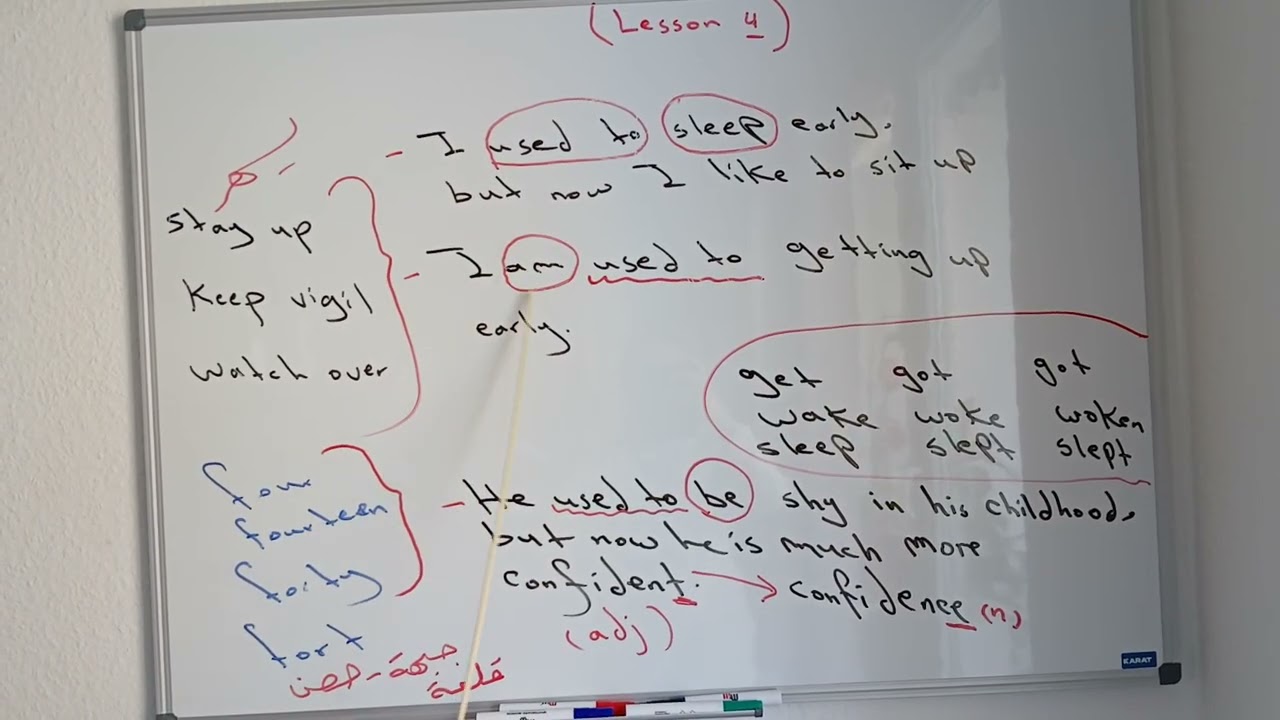 (Lesson 4)
- I used to sleep early.
but now I like to sit up
- I am used to getting up
early.
stay up
Keep vigil
watch over
get got got
wake woke woken
sleep slept slept
- He used to be shy in his childhood,
but now he is much more
confident. → confidence (n)
(adj)
four
fourteen
forty
fort
جبهة - حصن
قلعة
KARAT